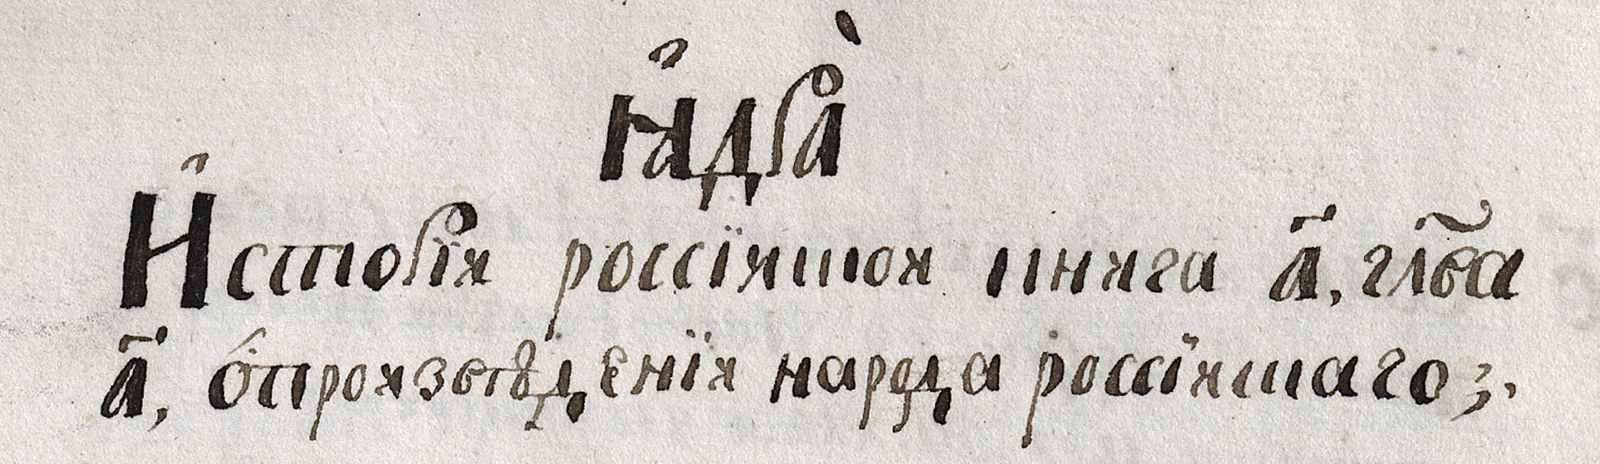 Ꙗ҆дра̀
И҆сторїи россїискои книга а҃, гл҃ва
а҃, о҆произвѣденїи народа россїискаго;.